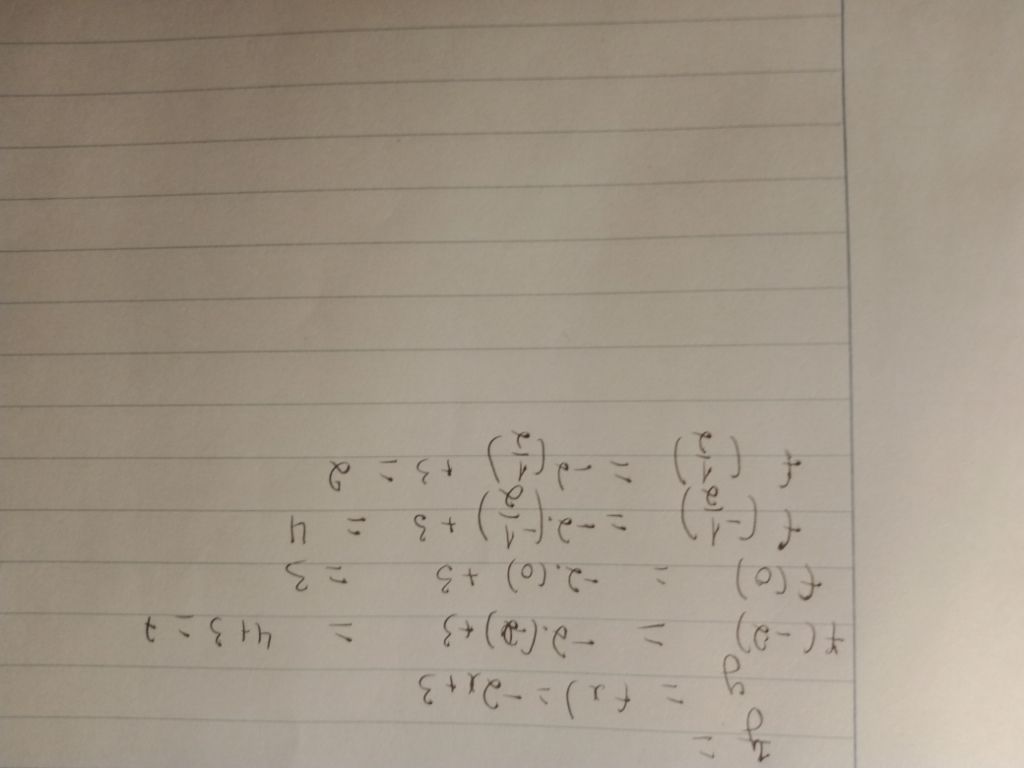 y =
y = f x) = -2x+3
f(-2) = -2.(-2)+3 = 4+3 = 7
f(0) = -2.(0) +3 = 3
f(-1/2) = -2.(-1/2) +3 = 4
f(1/2) = -2(1/2) +3 = 2